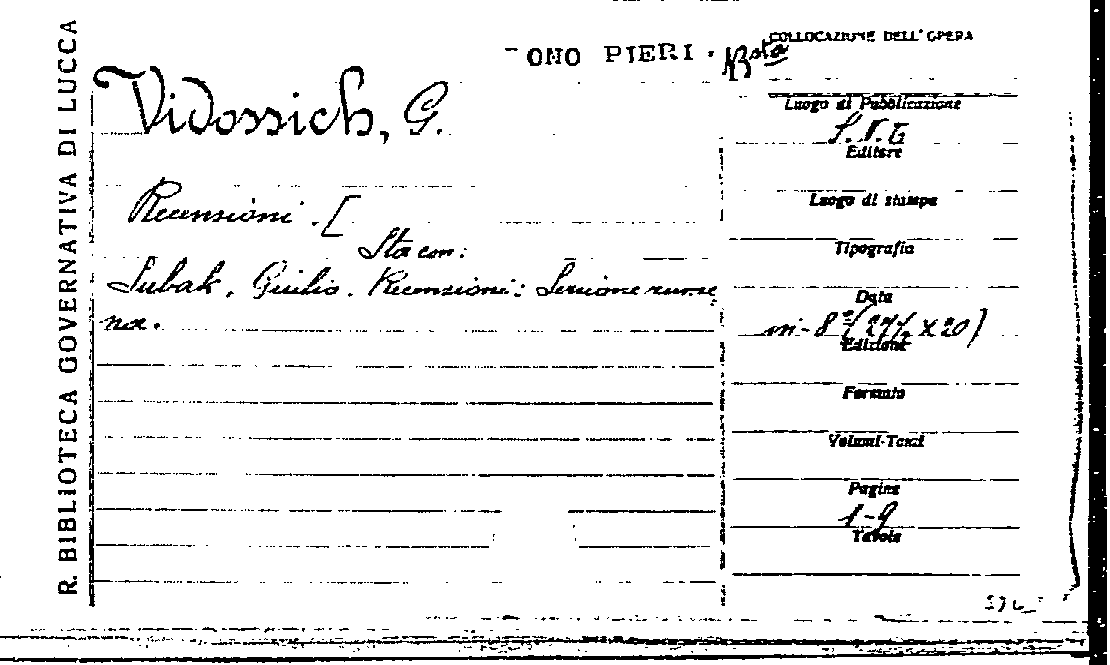 R. BIBLIOTECA GOVERNATIVA DI LUCCA
ONO PIERI.
COLLOCAZIONE DELL'OPERA
Vidossich, G.
Recensioni. [
Sta con:
Subak, Giulio. Recensioni: Sezione rume
na.
Luogo di Pubblicazione
Editore
Luogo di stampa
Tipografia
Data
in-8° (27½ x 20)
Edizione
Formato
Volumi-Tomi
Pagine
1-9
Tavole